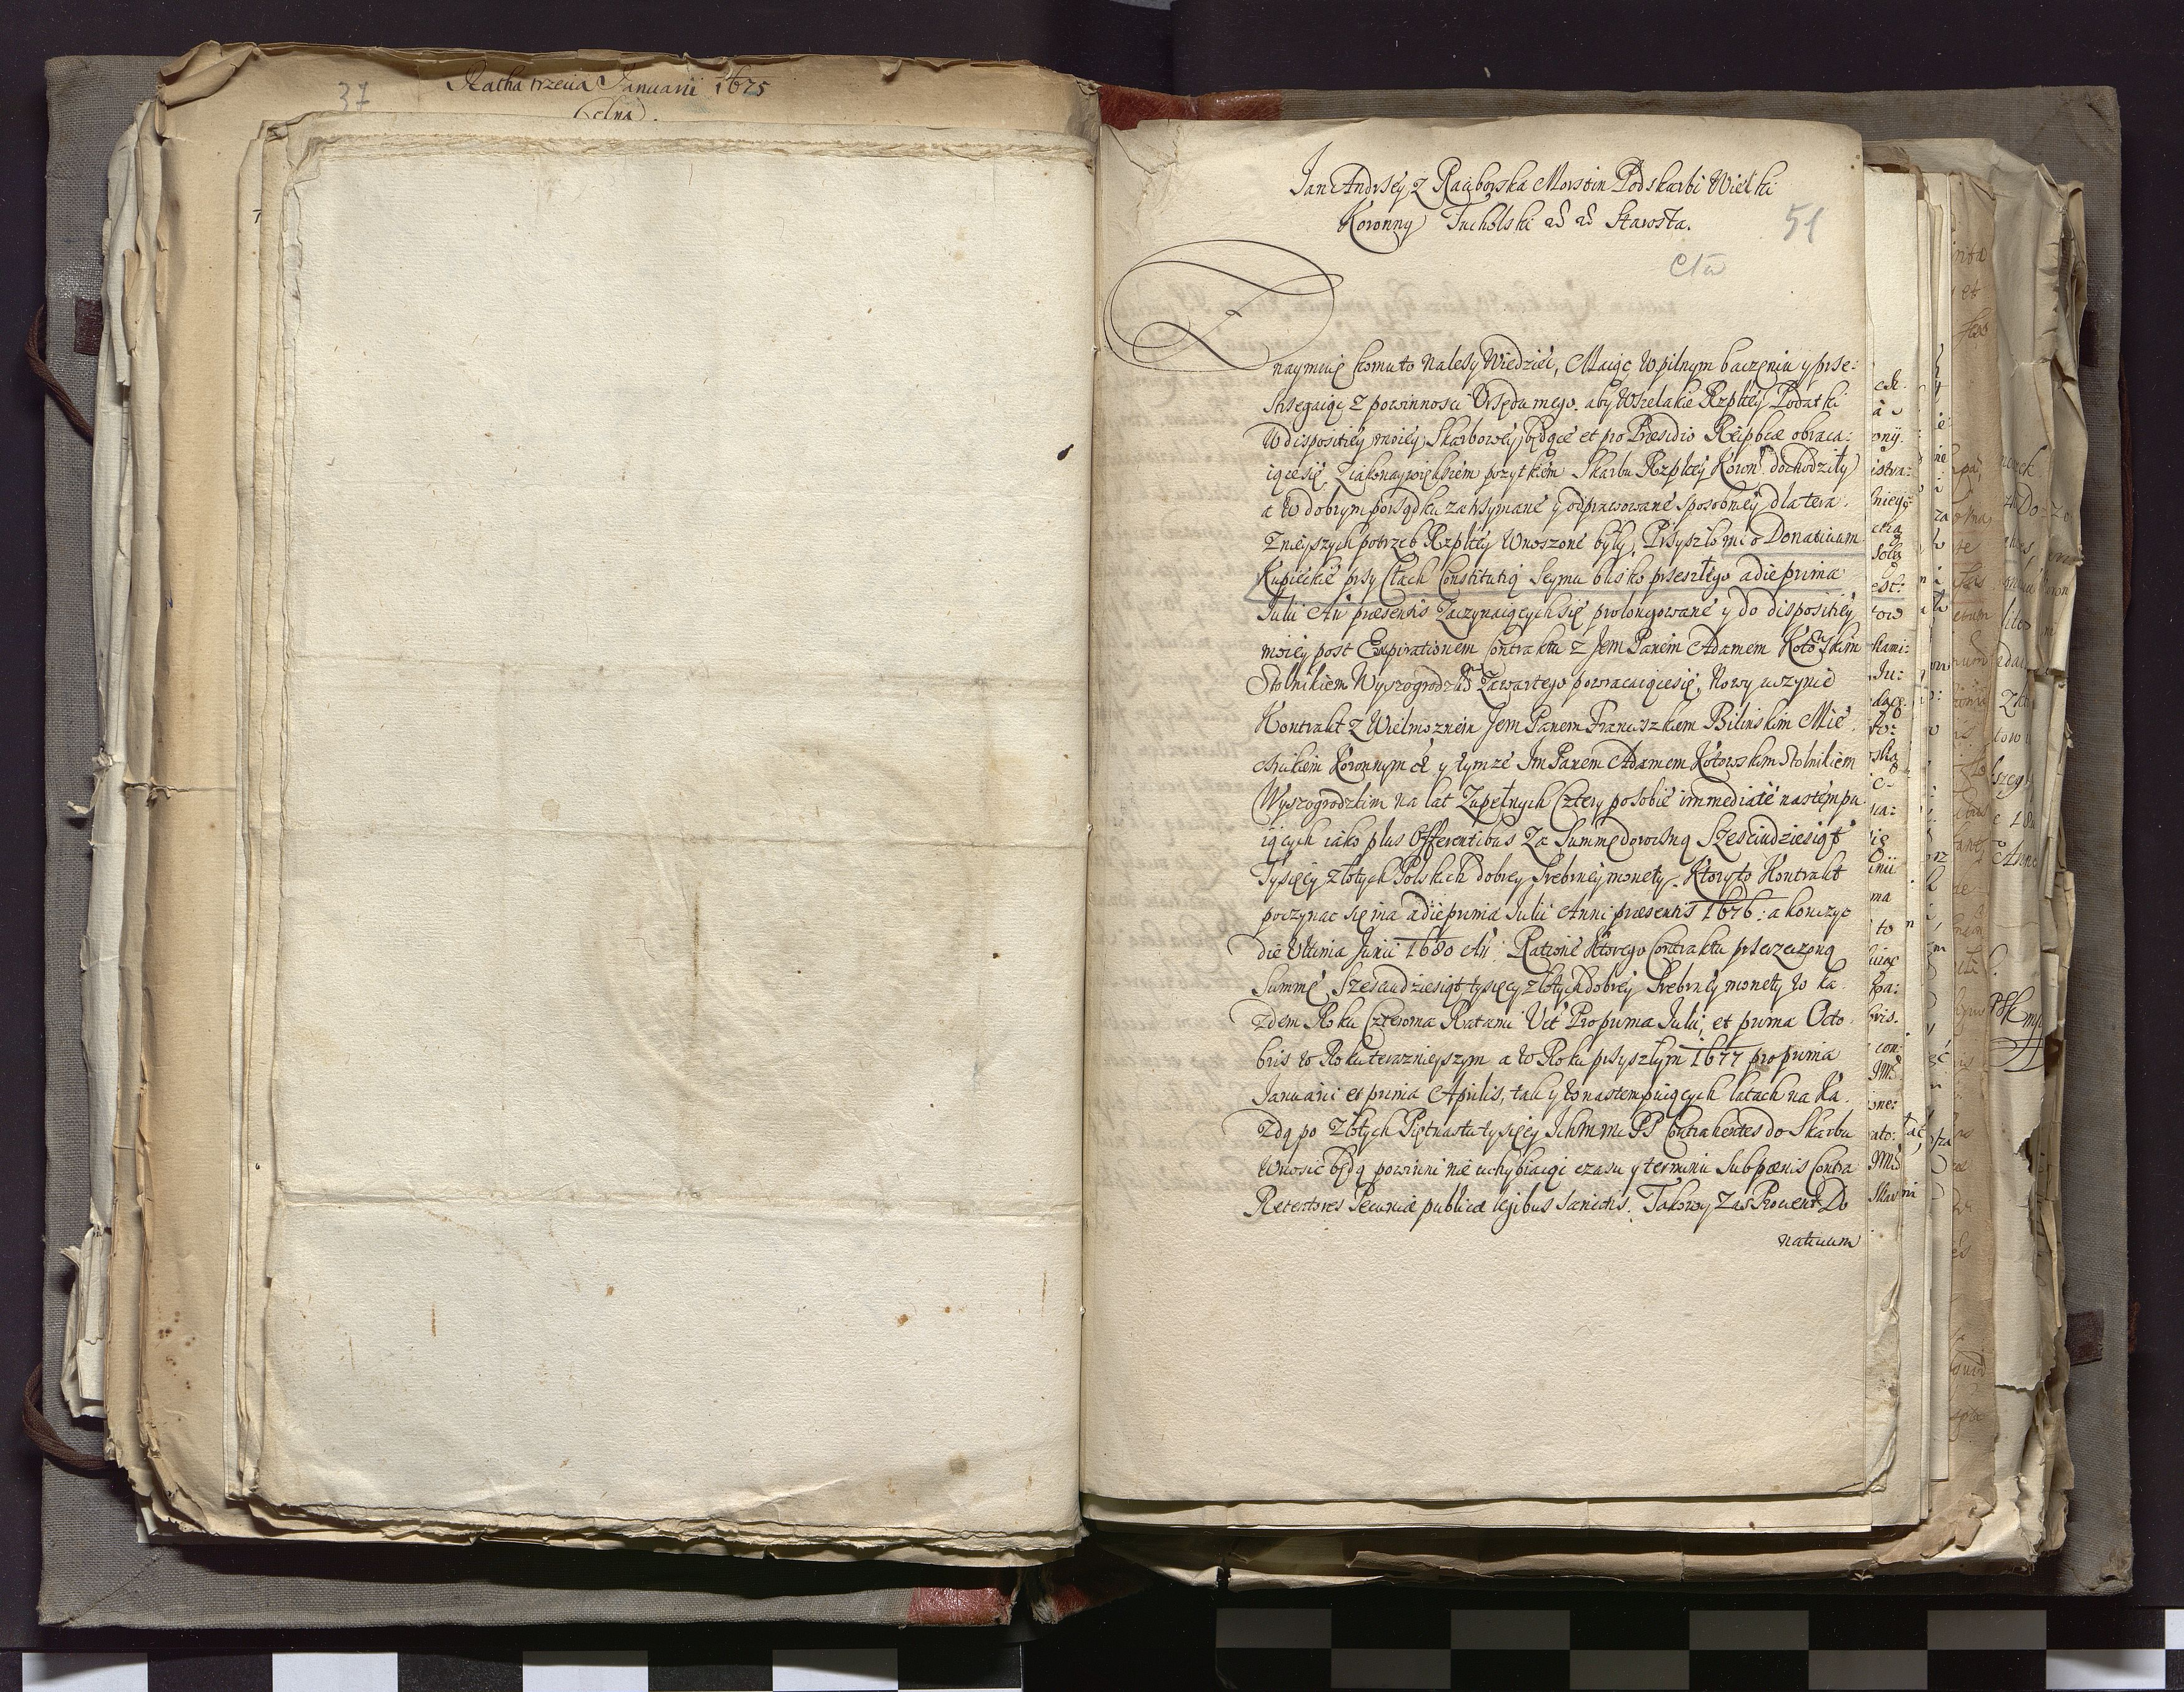 37
Ratha trzecia Januarii 1675
Celna.
Jan Andrzey z Raciborska Morstin Podskarbi Wielki
Koronny Tucholski etc etc Starosta.
51
Cła
Znaymuię komu to nalezy Wiedzieć, Maiąc w pilnym baczeniu y prze:
strzegaiąc z powinnosci Vrzędu mego, aby Wszelakie Rzpltey Podatki
w dispositiey moiey Skarbowey będące et pro Præsidio Reipblcæ obraca:
iące się, z iako naywiększem pozytkiem Skarbu Rzpltey Koron: dochodziły
a w dobrym porządku zatrzymane y odprawowane sposobniey dla tera:
znieyszych potrzeb Rzpltey Wnoszone były, Przyszło mi o Donatiuum
Kupieckie przy Cłach Constitutią Seymu blisko przeszłego a die prima
Julii An præsentis Zaczynaiących się prolongowane y do dispositiey
moiey post Expirationem Contraktu z Jem Panem Adamem Kotowskim
Stolnikiem Wyszogrodzkim Zawartego powracaiące się, Nowy uczynić
Kontrakt z Wielmoznem Jem Panem Franciszkiem Bilinskim Mie:
cznikiem Koronnym etc y tymze Im Panem Adamem Kotowskim Stolnikiem
Wyszogrodzkim na lat Zupełnych Cztery po sobie immediate nastempu
iących iako plus Offerentibus Za Summę doroczną Szesciudziesiąt
Tysięcy złotych Polskich dobrey Srebrney monety. Ktory to Kontrakt
poczynac się ma a die prima Julii Anni præsentis 1676: a konczyc
die Vltima Junii 1680 An: Ratione ktorego Contraktu przerzeczoną
Summę Szesciudziesiąt tysięcy złotych dobrey Srebrney monety w ka:
zdem Roku Czterema Ratami Vt Pro prima Julii, et prima Octo:
bris w Roku teraznieyszym a w Roku przyszłym 1677 pro prima
Januarii et prima Aprilis, tak y w nastempuiących latach na Ka:
zdą po złotych Piętnastu tysięcy Ichmm PP Contrahentes do Skarbu
Wnosić będą powinni nie uchybiaiąc czasu y terminu Sub pænis Contra
Retentores Pecuniæ publicæ legibus sancitis. Takowy zas Prouent Do
natiuum